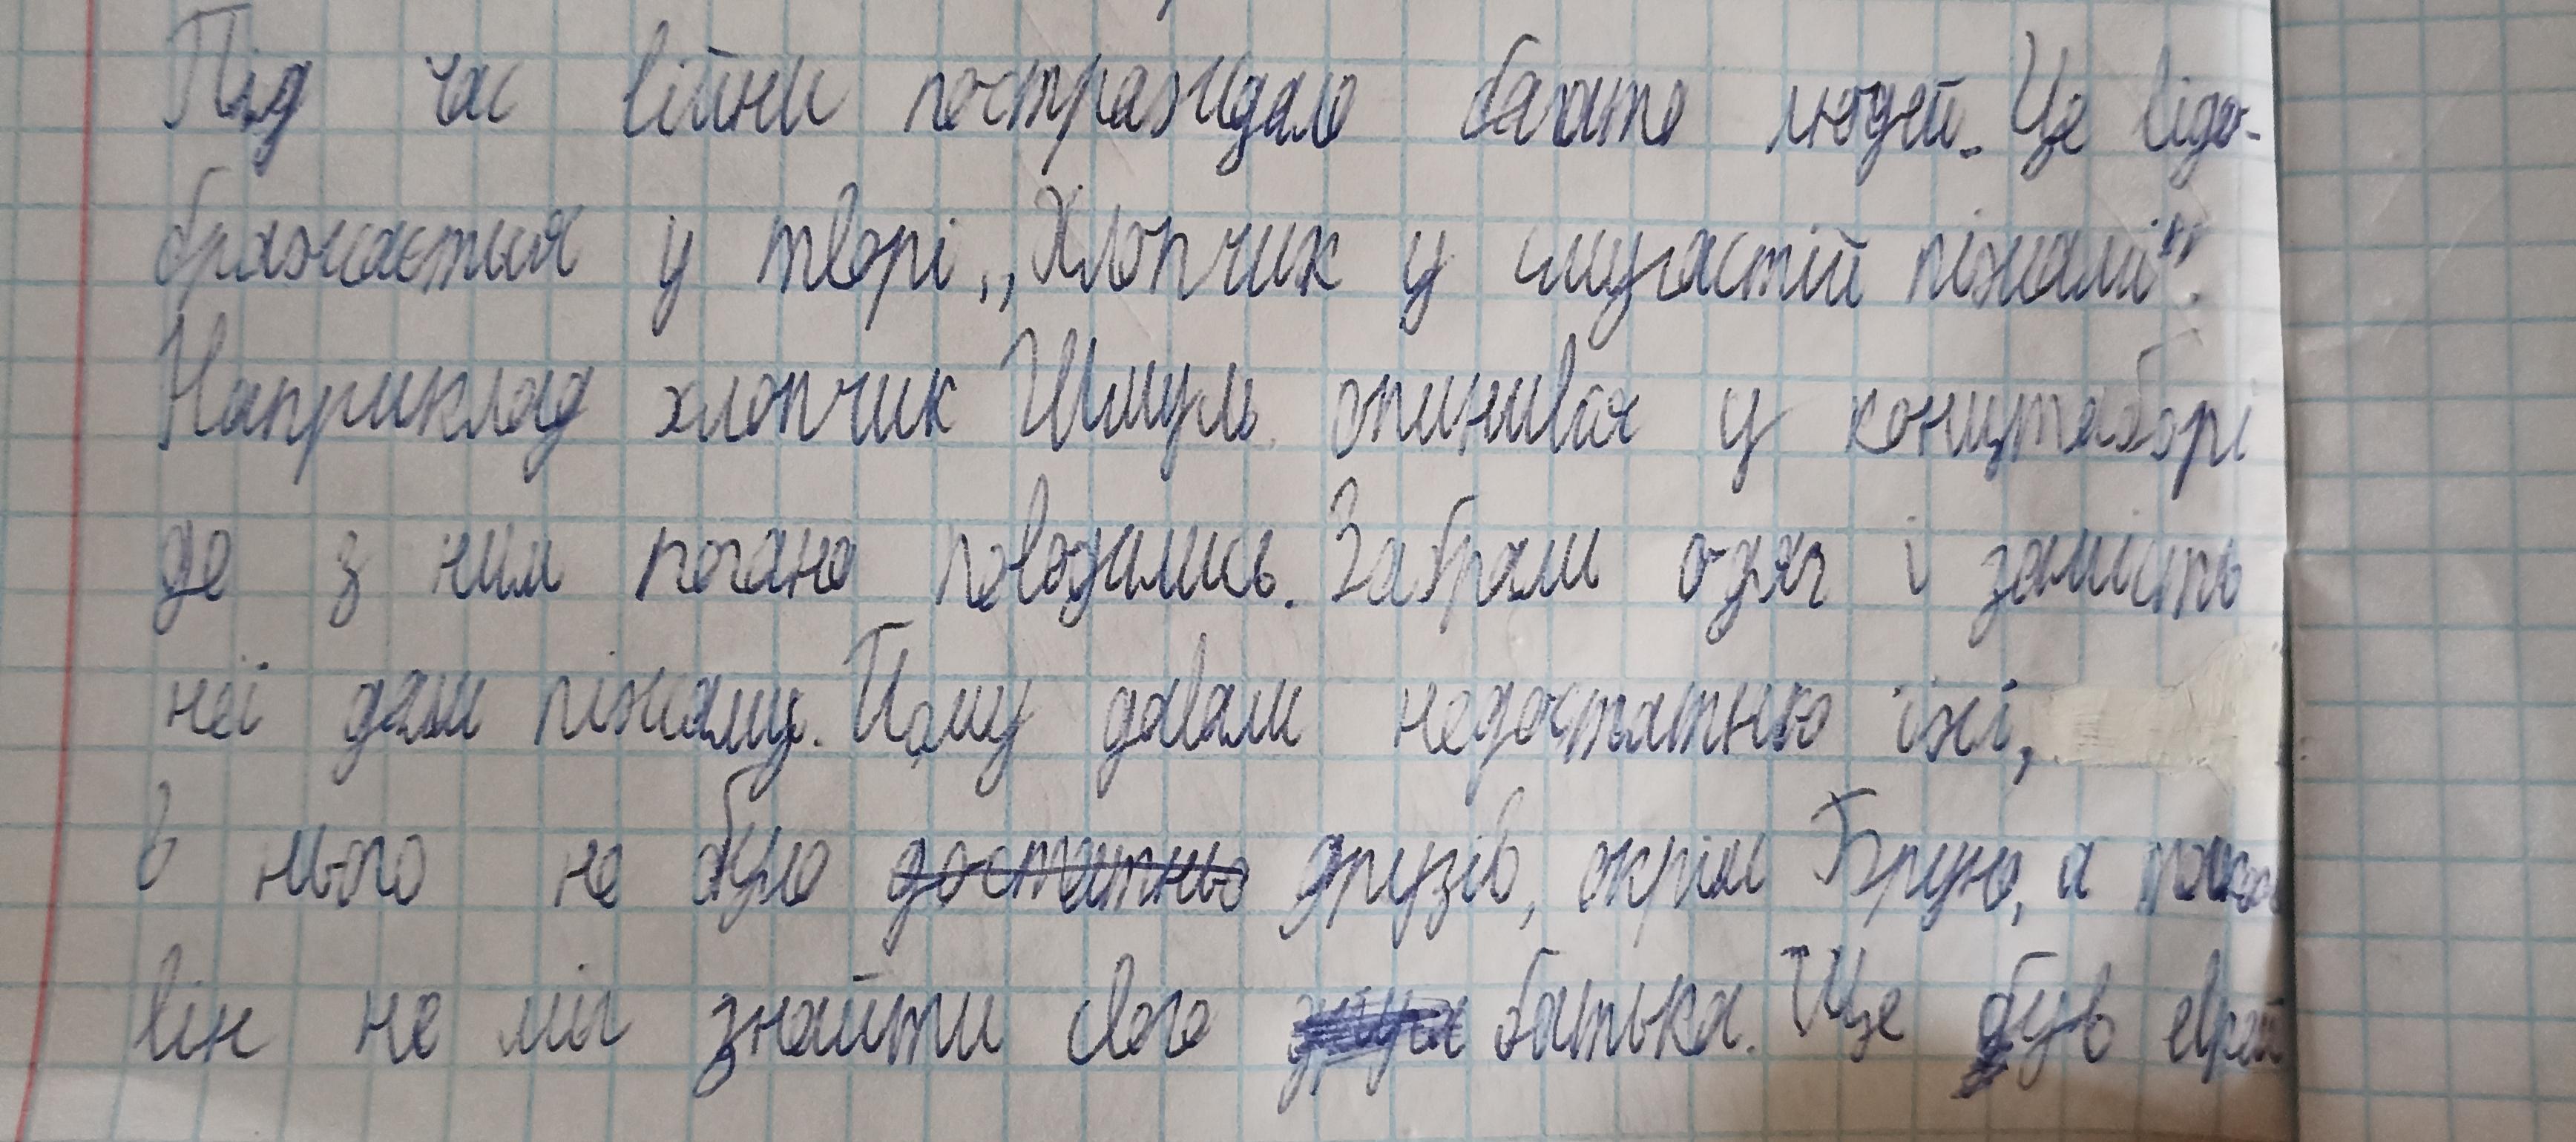 Під час війни постраждало багато людей. Це відо-
бражається у творі „Хлопчик у смугастій піжамі".
Наприклад хлопчик Шмуль опинився у концтаборі
де з ним погано поводились. Забрали одяг і замість
неї дали піжаму. Йому давали недостатньо їжі,
в нього не було достатньо друзів, окрім Бруно, а також
він не міг знайти свого батька. Ще був еврей